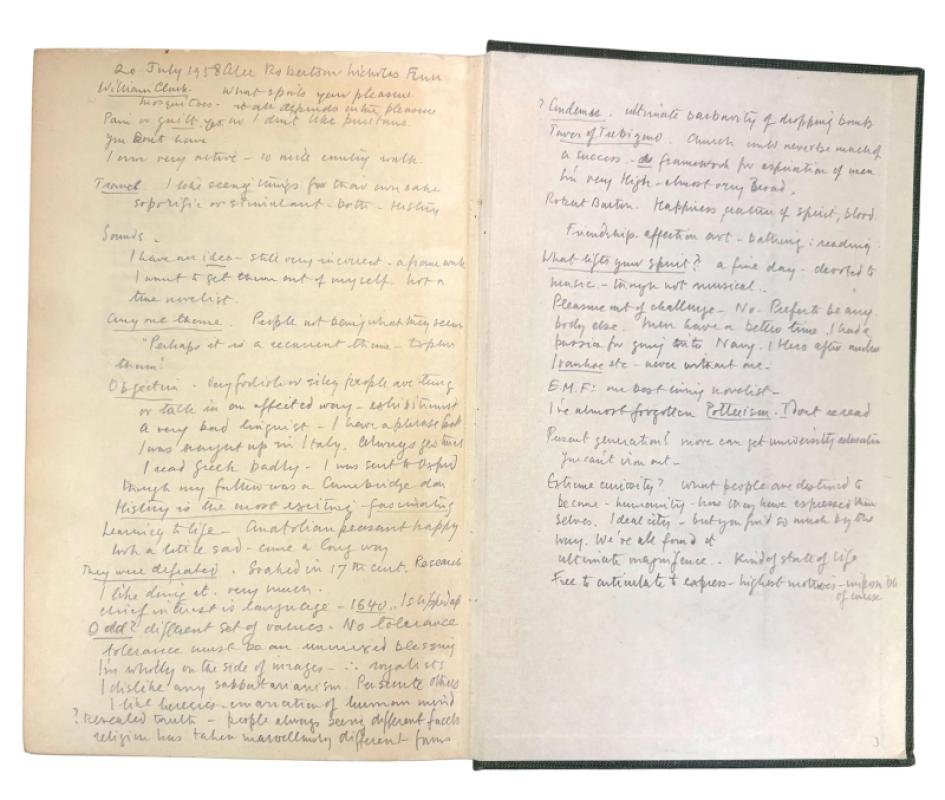 20 July 1958 Alec Robertson Nicholas Fenn
William Clark. What spoils your pleasure
mosquitoes - it all depends on the pleasure
Pain or guilt. yes or I don't like puritans.
You don't have
I am very active - 10 mile country walk.
Travel. I like seeing things for their own sake
soporific or stimulant - both - History
Sounds -
I have an idea - still very incorrect - a frame work
I want to get them out of myself. Not a
true novelist.
Any one theme. People not being what they seem
"Perhaps it is a recurrent theme -
them"
Objection. Very foolish or silly people
or talk in an affected way - exhibitionist
A very bad linguist - I have a phrase book
I was brought up in Italy. Always gesture
I read Greek badly - I was sent to Oxford
though my father was a Cambridge don
History is the most exciting - fascinating
Learning to life - Anatolian peasant happy
but a little sad - came a long way
They were defeated. Soaked in 17th cent. Research
I like doing it. very much.
chief interest is language - 1640. I slipped up
Odd? different set of values. No tolerance
tolerance must be an unmixed blessing
I'm wholly on the side of - ∴ royalists
I dislike any sabbatarianism. Persecute others
I like heresies - emanation of human mind
? Revealed truth - people always seeing different facets
religion has taken marvellously different forms
? Condemns. ultimate barbarity of dropping bombs
Towers of Trebizond. Church could never be much of
a success - framework for aspiration of men
I'm very High - almost very Broad.
Robert Burton. Happiness, of spirit, blood.
Friendship. affection art - bathing : reading.
What lifts your spirit? a fine day - devoted to
music - though not musical.
Pleasure out of challenge - No. Prefer to be any
body else. Men have a better time. I had a
passion for going into Navy. 1 Hero after another
Ivanhoe etc - never without one.
E.M.F: our best living novelist -
I've almost forgotten Potterism. I Don't reread
Present generation? more can get university education
You can't iron out -
Extreme curiosity? what people are destined to
become - humanity - how they have expressed them
selves. Ideal city - but you find so much by the
way. We've all found it
ultimate magnificence.. Kind of state of life
Free to articulate & express - highest motives -
of course
3